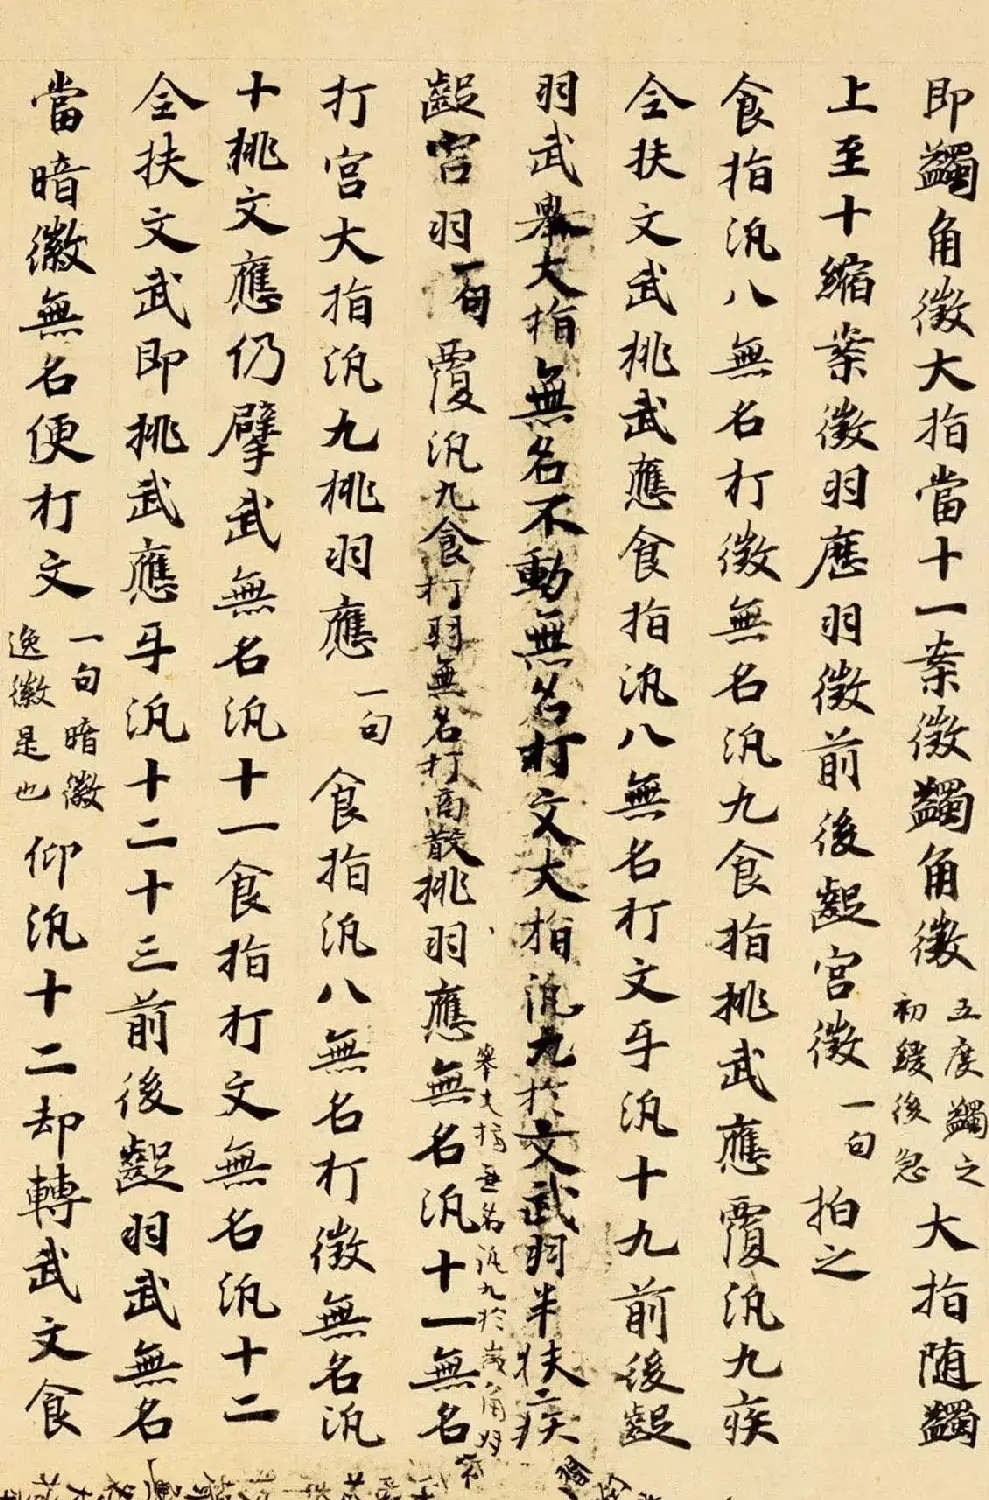 即蠲角徵大指當十一案徵蠲角徵五度蠲之初緩後急大指随蠲
上至十縮案徵羽應羽徵前後齪宮徵一句拍之
食指汎八無名打徵無名汎九食指挑武應覆汎九疾
全扶文武挑武應食指汎八無名打文牙汎十九前後齪
羽武舉大指無名不動無名打文大指汎九於文武羽半扶疾
舉大指無名汎九於
齪宮羽一句覆汎九食打羽無名打商散挑羽應無名汎十一無名
打宮大指汎九挑羽應一句食指汎八無名打徵無名汎
十挑文應仍擘武無名汎十一食指打文無名汎十二
全扶文武即挑武應牙汎十二十三前後齪羽武無名
當暗徽無名便打文一句暗徽逸徽是也仰汎十二却轉武文食